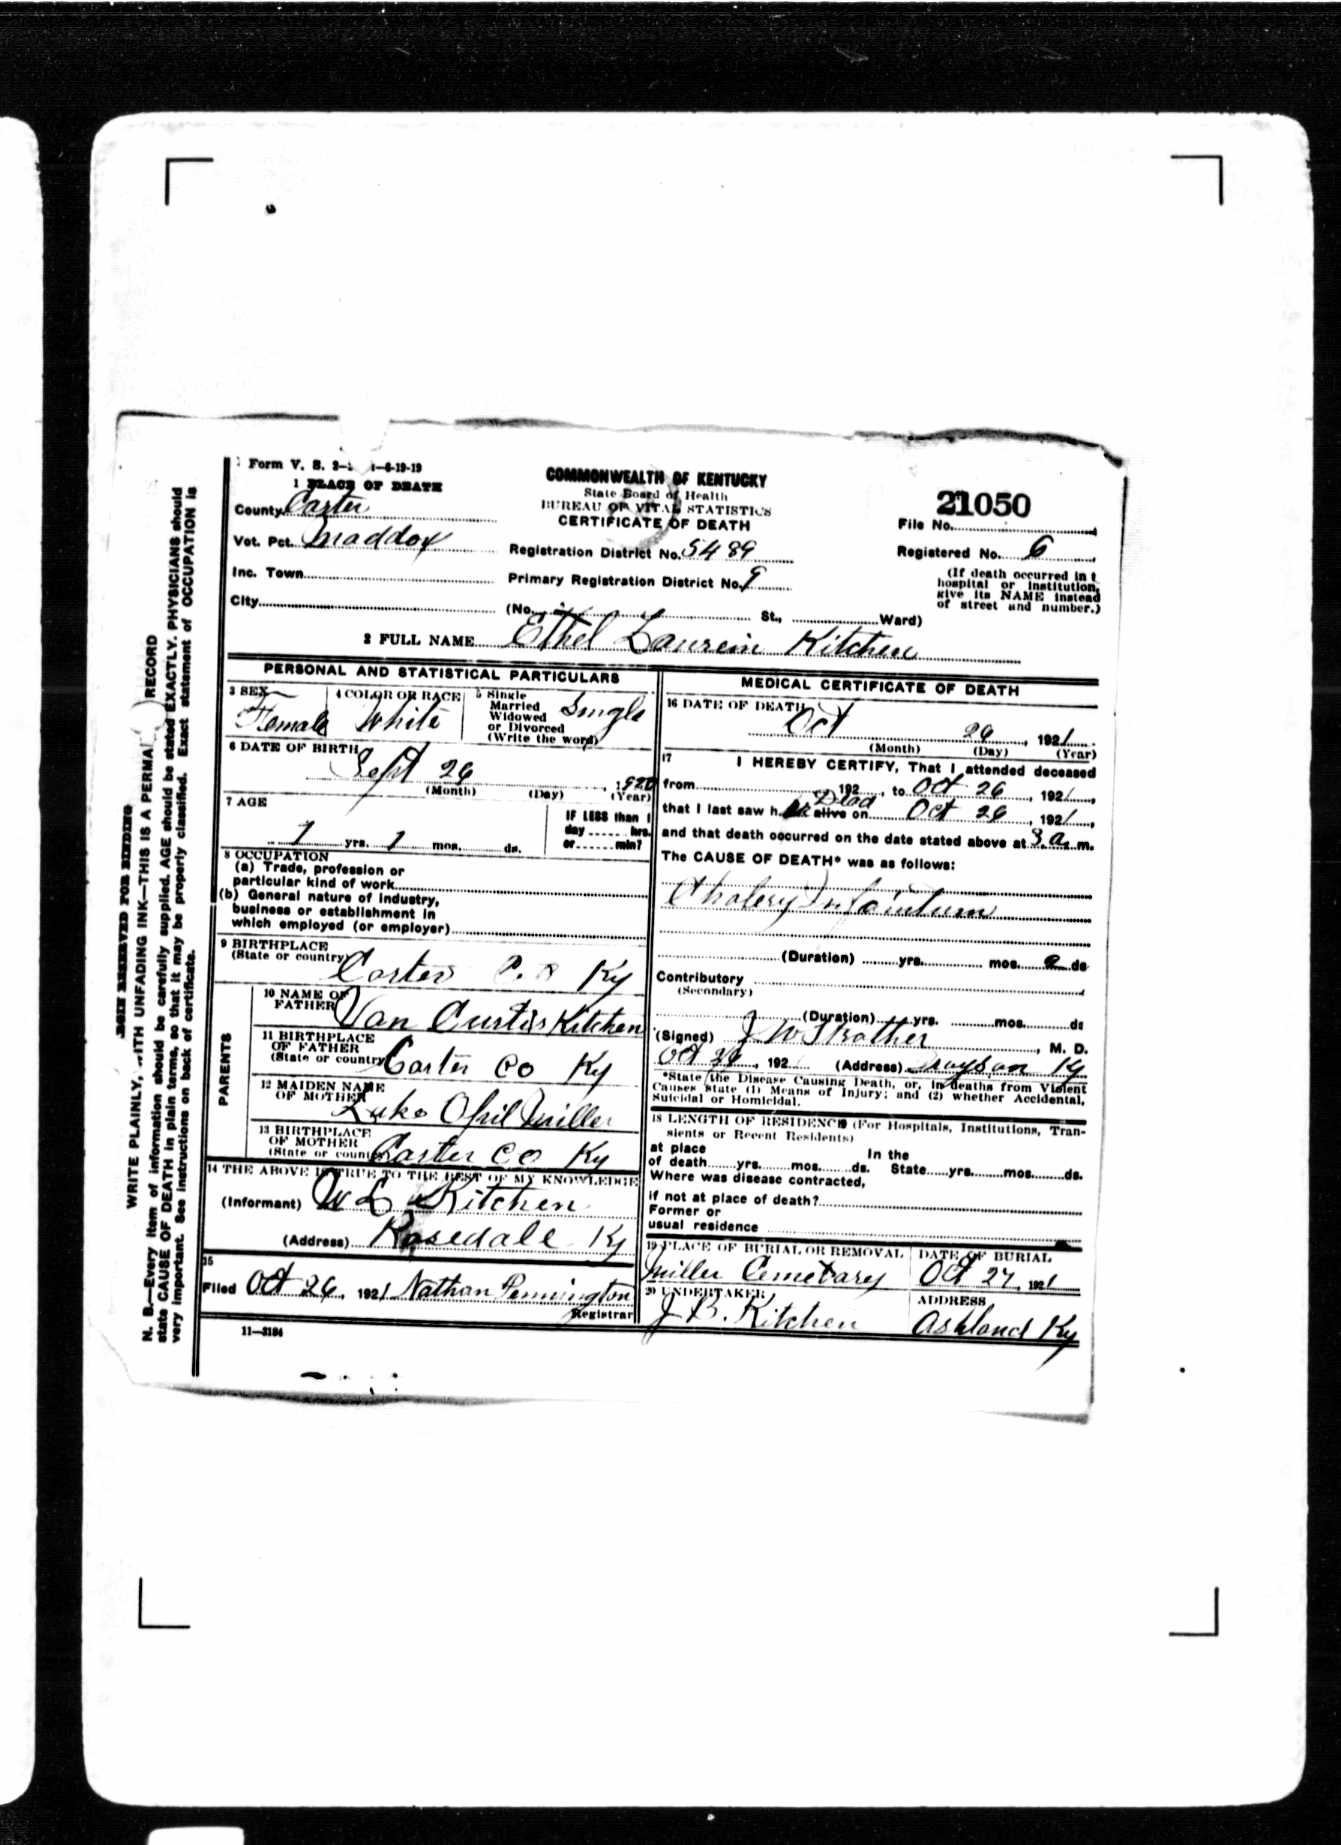 Form V. S. 2— —6-19-19
1 PLACE OF DEATH
County Carter
Vot. Pct. Maddox
Inc. Town
City
COMMONWEALTH OF KENTUCKY
State Board of Health
BUREAU OF VITAL STATISTICS
CERTIFICATE OF DEATH
Registration District No. 5489
Primary Registration District No. 9
(No. St., Ward)
21050
File No.
Registered No. 6
(If death occurred in
hospital or institution,
give its NAME instead
of street and number.)
2 FULL NAME Ethel Kitchen
PERSONAL AND STATISTICAL PARTICULARS
3 SEX
Female
4 COLOR OR RACE
White
5 Single
Married
Widowed
or Divorced
(Write the word)
Single
6 DATE OF BIRTH
Sept 26 1920
(Month) (Day) (Year)
7 AGE
1 yrs. 1 mos. ds.
IF LESS than 1
day hrs.
or min?
8 OCCUPATION
(a) Trade, profession or
particular kind of work
(b) General nature of industry,
business or establishment in
which employed (or employer)
9 BIRTHPLACE
(State or country)
Carter Co Ky
PARENTS
10 NAME OF
FATHER
Van Curtis Kitchen
11 BIRTHPLACE
OF FATHER
(State or country
Carter Co Ky
12 MAIDEN NAME
OF MOTHER
Miller
13 BIRTHPLACE
OF MOTHER
(State or country
Carter Co Ky
14 THE ABOVE IS TRUE TO THE BEST OF MY KNOWLEDGE
(Informant) W L Kitchen
(Address) Rosedale Ky
15
Filed Oct 26, 1921 Nathan Pennington
Registrar
11—3184
MEDICAL CERTIFICATE OF DEATH
16 DATE OF DEATH
Oct 26, 1921
(Month) (Day) (Year)
17 I HEREBY CERTIFY, That I attended deceased
from 192 , to Oct 26, 1921,
that I last saw her Dead alive on Oct 26, 1921,
and that death occurred on the date stated above at 3 a. m.
The CAUSE OF DEATH* was as follows:
(Duration) yrs. mos. ds
Contributory
(Secondary)
(Duration) yrs. mos. ds
(Signed) J W Strother, M. D.
Oct 26, 192 (Address) Grayson Ky
*State the Disease Causing Death, or, in deaths from Violent
Causes state (1) Means of Injury; and (2) whether Accidental,
Suicidal or Homicidal.
18 LENGTH OF RESIDENCE (For Hospitals, Institutions, Tran-
sients or Recent Residents)
at place In the
of death yrs. mos. ds. State yrs. mos. ds.
Where was disease contracted,
if not at place of death?
Former or
usual residence
19 PLACE OF BURIAL OR REMOVAL
Miller Cemetary
DATE OF BURIAL
Oct 27, 1921
20 UNDERTAKER
J B. Kitchen
ADDRESS
Ashland Ky
WRITE PLAINLY, WITH UNFADING INK—THIS IS A PERMA RECORD
N. B.—Every item of information should be carefully supplied. AGE should be stated EXACTLY. PHYSICIANS should
state CAUSE OF DEATH in plain terms, so that it may be properly classified. Exact statement of OCCUPATION is
very important. See instructions on back of certificate.